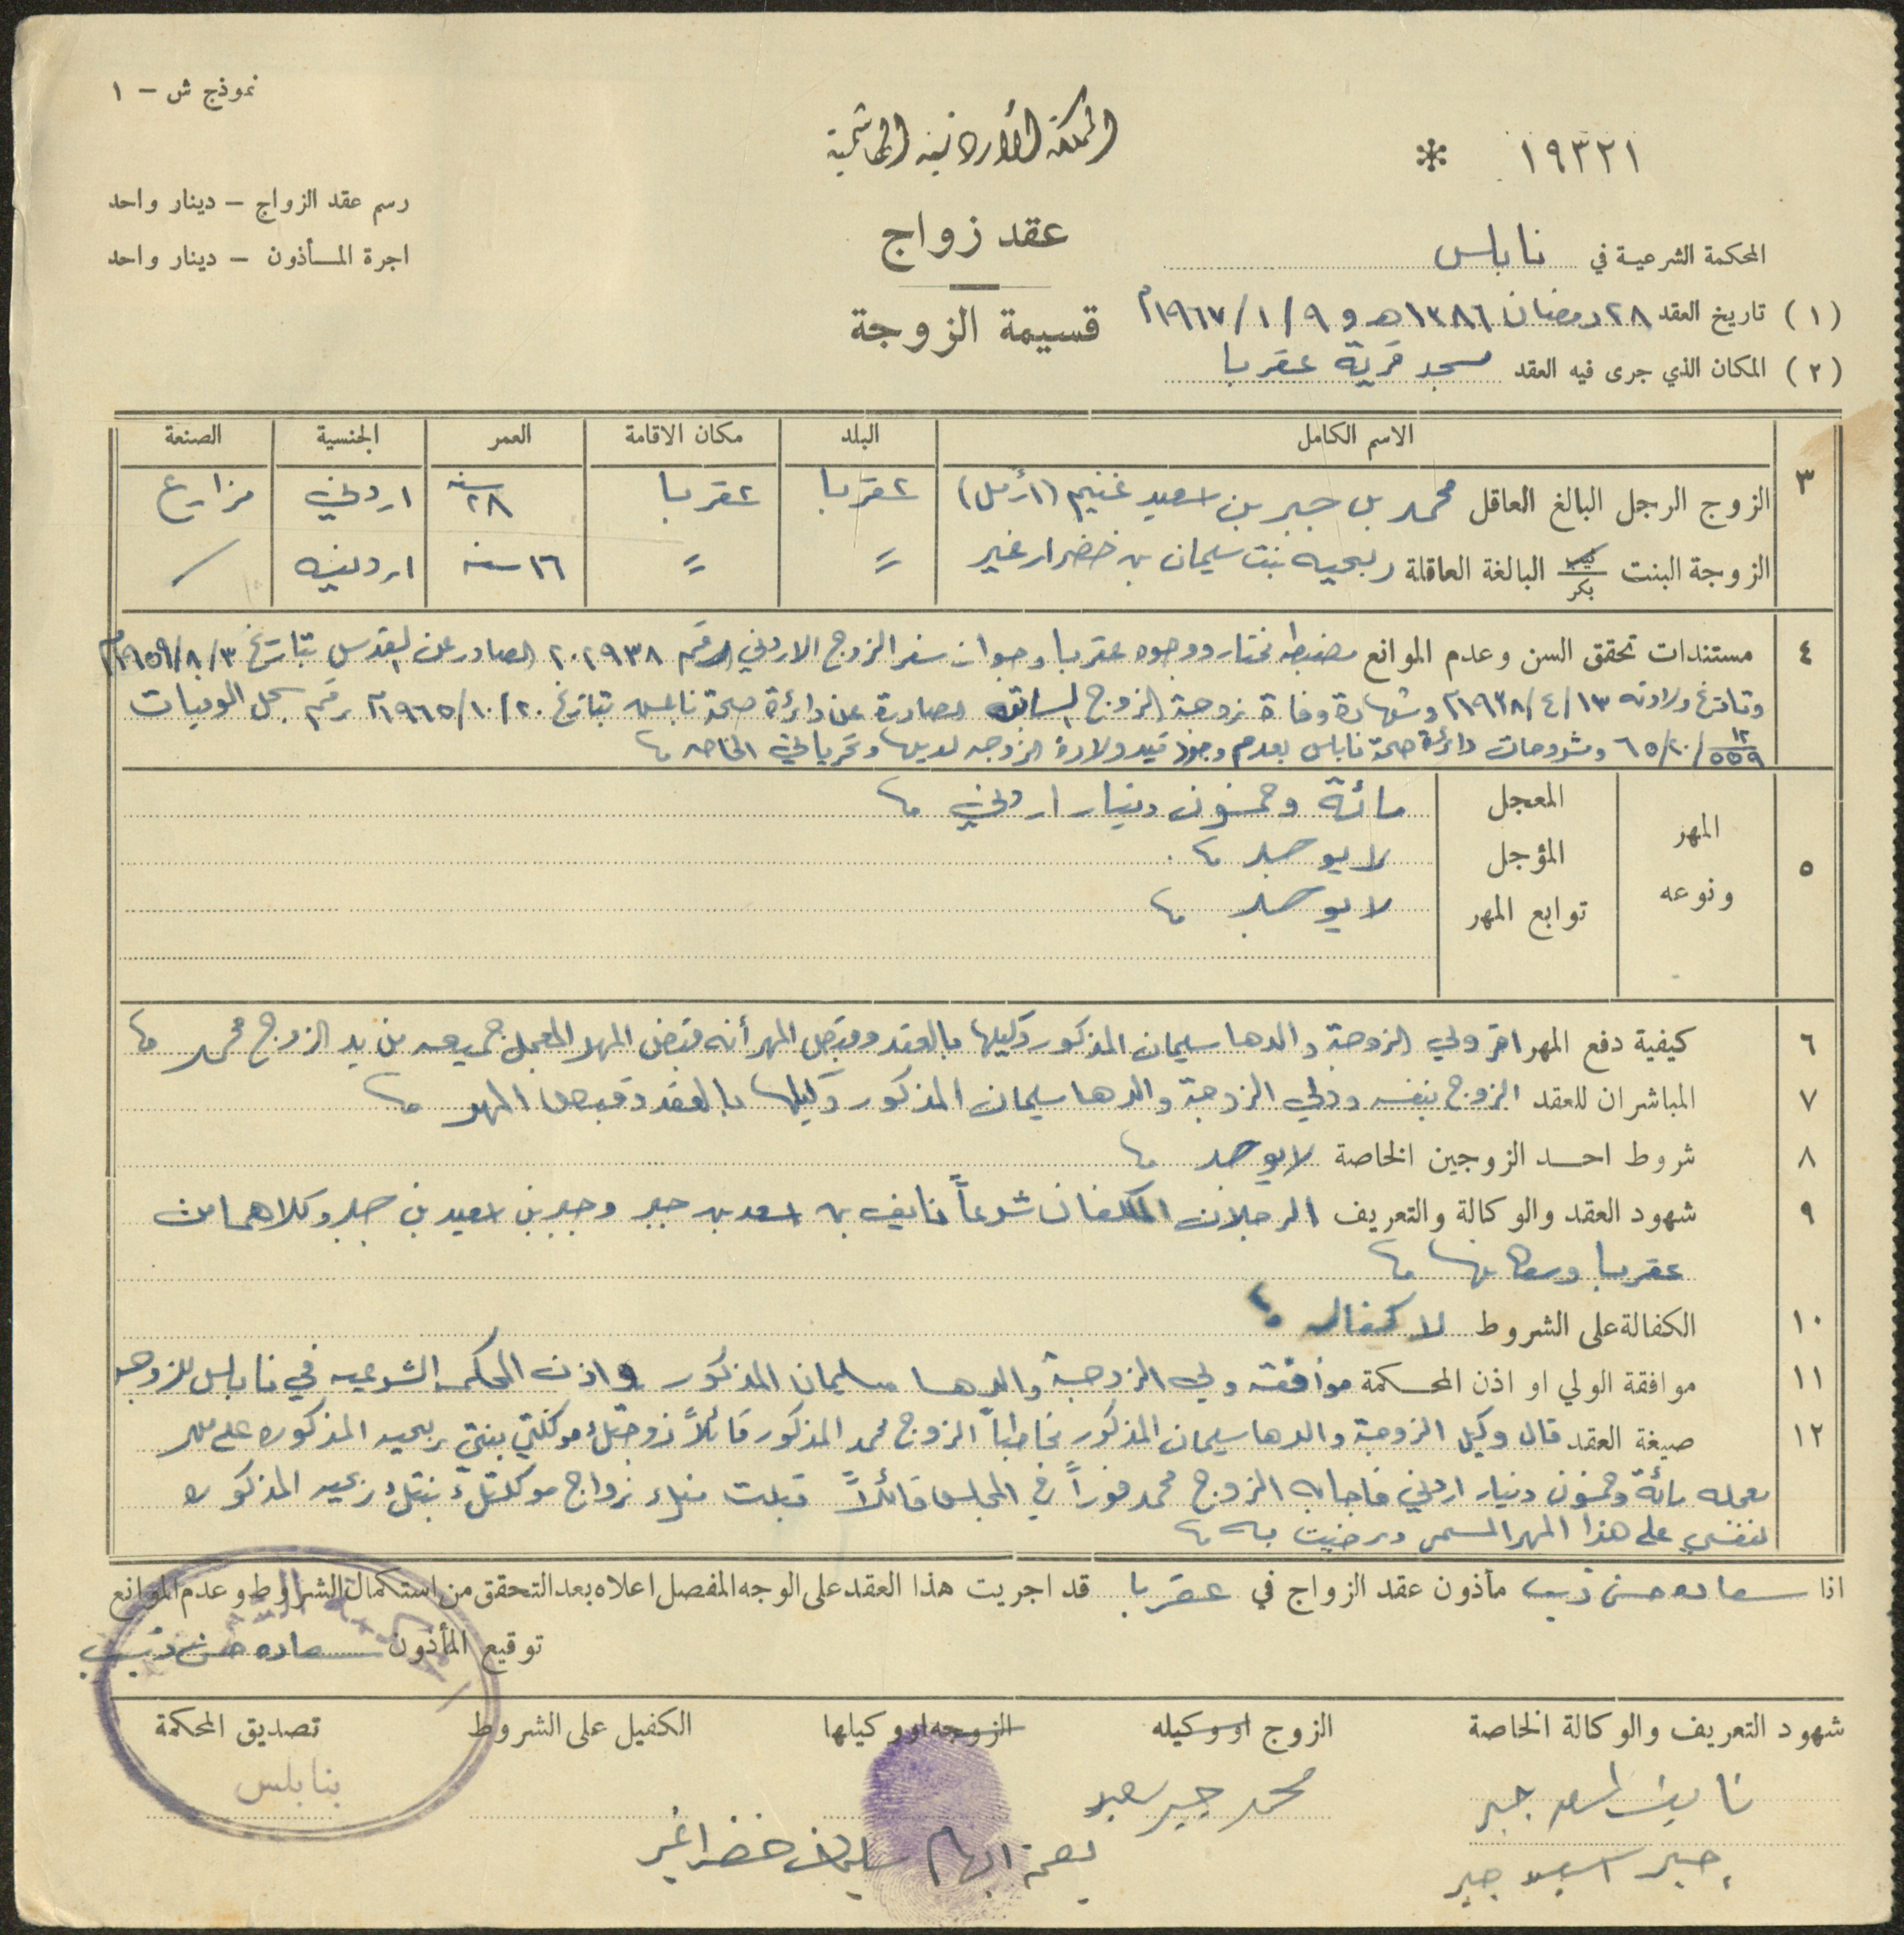 نموذج ش - ١
المملكة الأردنية الهاشمية
١٩٣٢١ *
رسم عقد الزواج - دينار واحد
اجرة المأذون - دينار واحد
عقد زواج
قسيمة الزوجة
المحكمة الشرعية في نابلس
(١) تاريخ العقد ٢٨ رمضان ١٣٨٦هـ و ٩/١/١٩٦٧م
(٢) المكان الذي جرى فيه العقد مسجد قرية عقربا
الاسم الكامل البلد مكان الاقامة العمر الجنسية الصنعة
٣ الزوج الرجل البالغ العاقل محمد بن جبر بن اسعيد غنيم (أرمل) عقربا عقربا ٢٨ سنه اردني مزارع
الزوجة البنت ثيب بكر البالغة العاقلة ربحيه بنت سليمان بن خضر ارغير = = ١٦ سنه اردنيه /
٤ مستندات تحقق السن وعدم الموانع مضبطه مختار ووجوه عقربا وجواز سفر الزوج الاردني رقم ٢٠٢٩٣٨ الصادر عن القدس بتاريخ ٣/٨/١٩٥٩م
وتاريخ ولادته ١٣/٤/١٩٣٨م وشهادة وفاة زوجة الزوج السابقه الصادرة عن دائرة صحة نابلس بتاريخ ٢٠/١٠/١٩٦٥م رقم سجل الوفيات
١٢/٥٥٩/٦٥/٢٠ ومشروحات دائرة صحة نابلس بعدم وجود قيد ولادة الزوجه لديها وتحرياتي الخاصه
٥ المهر ونوعه
المعجل مائة وخمسون دينار اردني
المؤجل لا يوجد
توابع المهر لا يوجد
٦ كيفية دفع المهر اقر ولي الزوجة والدها سليمان المذكور وكيلها بالعقد وقبض المهر أنه قبض المهر المعجل جميعه من يد الزوج محمد
٧ المباشران للعقد الزوج بنفسه وولي الزوجة والدها سليمان المذكور وكيلها بالعقد وقبض المهر
٨ شروط احد الزوجين الخاصة لا يوجد
٩ شهود العقد والوكالة والتعريف الرجلان المكلفان شرعاً نايف بن اسعد بن جبر وجبر بن اسعيد بن جبر وكلاهما من
عقربا وسكانها
١٠ الكفالة على الشروط لا كفاله
١١ موافقة الولي او اذن المحكمة موافقة ولي الزوجة والدها سليمان المذكور واذن المحكمه الشرعيه في نابلس للزوجه
١٢ صيغة العقد قال وكيل الزوجة والدها سليمان المذكور مخاطباً الزوج محمد المذكور قائلاً زوجتك موكلتي بنتي ربحيه المذكوره على مهر
معجله مائة وخمسون دينار اردني فاجابه الزوج محمد فوراً في المجلس قائلاً قبلت منك زواج موكلتك بنتك ربحيه المذكوره
لنفسي على هذا المهر المسمى ورضيت به
انا سعاده حسن ذيب مأذون عقد الزواج في عقربا قد اجريت هذا العقد على الوجه المفصل اعلاه بعد التحقق من استكمال الشرائط وعدم الموانع
توقيع المأذون سعاده حسن ذيب
شهود التعريف والوكالة الخاصة الزوج او وكيله الزوجه او وكيلها الكفيل على الشروط تصديق المحكمة
نايف اسعد جبر
جبر اسعيد جبر
محمد جبر سعيد
بصمة ابهام سليمان خضر اغير
بنابلس